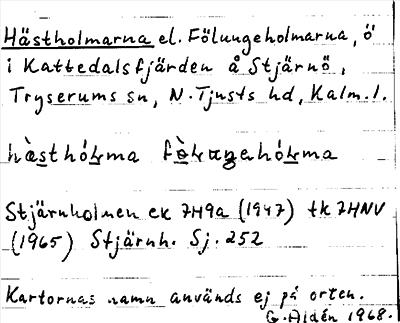 Hästholmarna el. Fölungeholmarna, ö
i Kattedalsfjärden å Stjärnö,
Tryserums sn, N. Tjusts hd, Kalm. l.
hæ̀sthól̲ma fø̀l̲uŋehól̲ma
Stjärnholmen ek 7H9a (1947) tk 7HNV
(1965) Stjärnh. Sj. 252
Kartornas namn används ej på orten.
G. Aldén 1968.